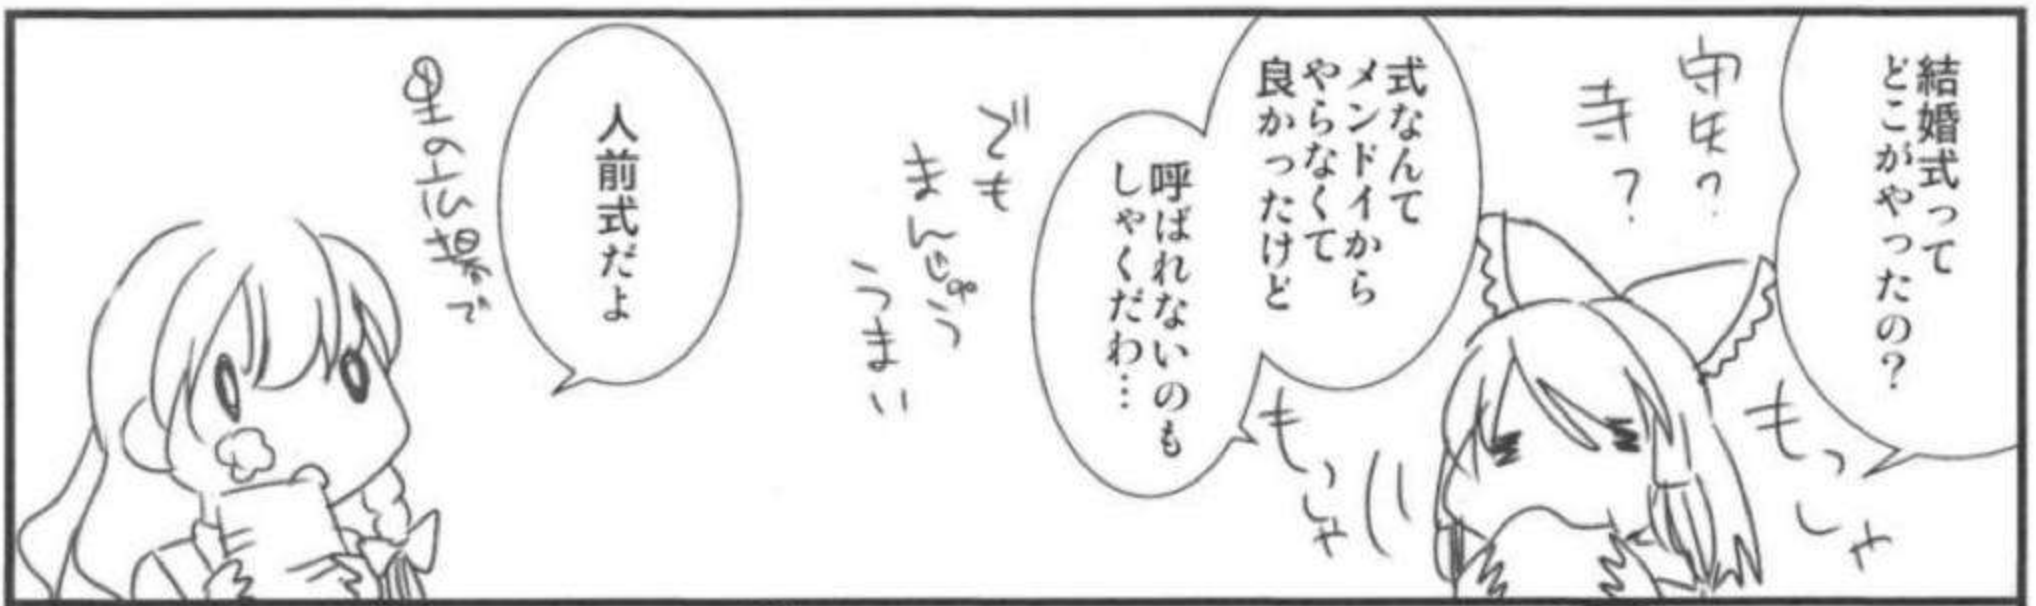 結婚式って
どこがやったの?
守矢?
寺?
もっしゃ
式なんて
メンドイから
やらなくて
良かったけど
呼ばれないのも
しゃくだわ…
もっしゃ
でも
まんじゅう
うまい
人前式だよ
里の広場で